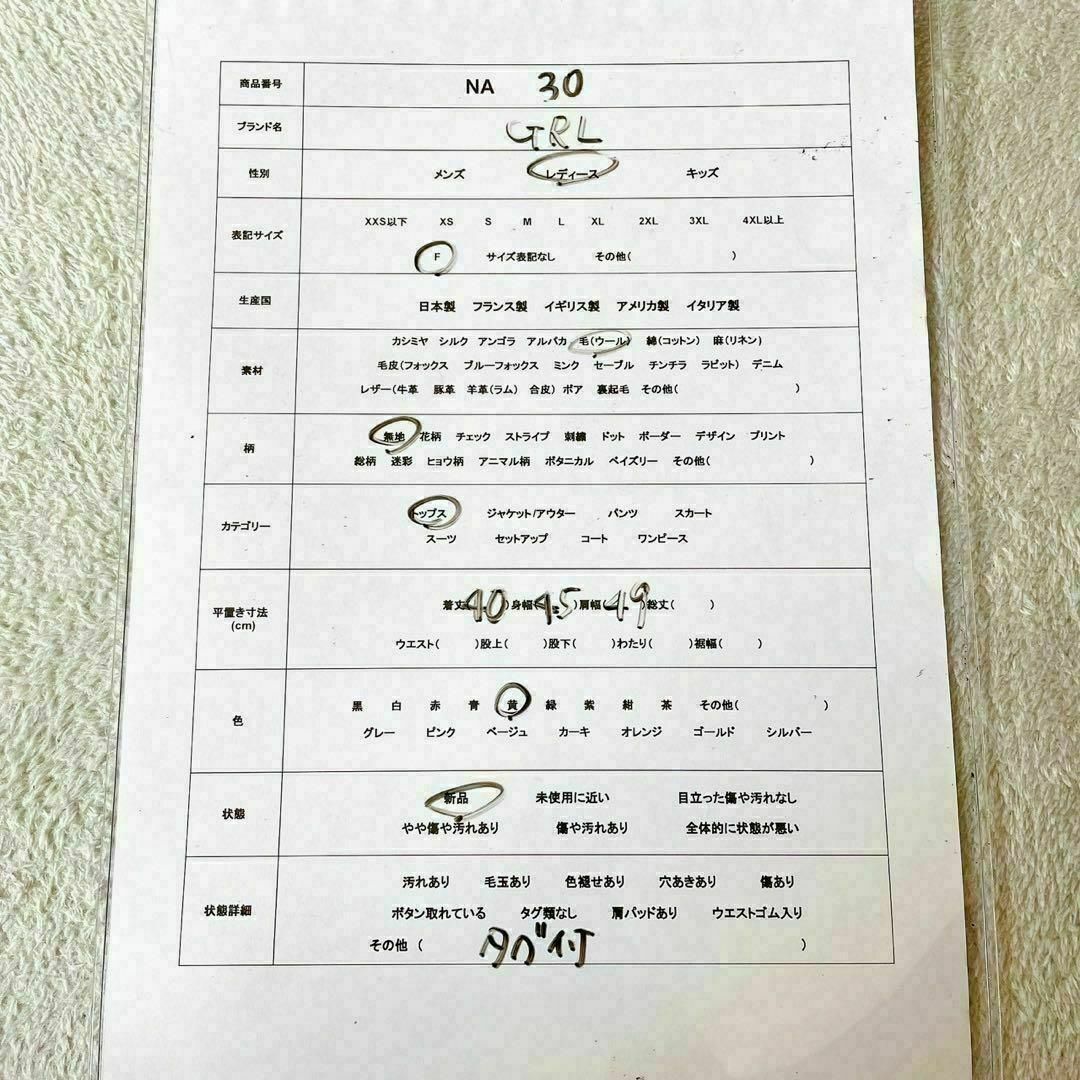 商品番号 NA 30
ブランド名 GRL
性別 メンズ レディース キッズ
表記サイズ XXS以下 XS S M L XL 2XL 3XL 4XL以上
F サイズ表記なし その他( )
生産国 日本製 フランス製 イギリス製 アメリカ製 イタリア製
素材 カシミヤ シルク アンゴラ アルパカ 毛(ウール) 綿(コットン) 麻(リネン)
毛皮(フォックス ブルーフォックス ミンク セーブル チンチラ ラビット) デニム
レザー(牛革 豚革 羊革(ラム) 合皮) ボア 裏起毛 その他( )
柄 無地 花柄 チェック ストライプ 刺繍 ドット ボーダー デザイン プリント
総柄 迷彩 ヒョウ柄 アニマル柄 ボタニカル ペイズリー その他( )
カテゴリー トップス ジャケット/アウター パンツ スカート
スーツ セットアップ コート ワンピース
平置き寸法 (cm) 着丈( 40 )身幅( 45 )肩幅( 49 )総丈( )
ウエスト( )股上( )股下( )わたり( )裾幅( )
色 黒 白 赤 青 黄 緑 紫 紺 茶 その他( )
グレー ピンク ベージュ カーキ オレンジ ゴールド シルバー
状態 新品 未使用に近い 目立った傷や汚れなし
やや傷や汚れあり 傷や汚れあり 全体的に状態が悪い
状態詳細 汚れあり 毛玉あり 色褪せあり 穴あきあり 傷あり
ボタン取れている タグ類なし 肩パッドあり ウエストゴム入り
その他 ( タグ付 )